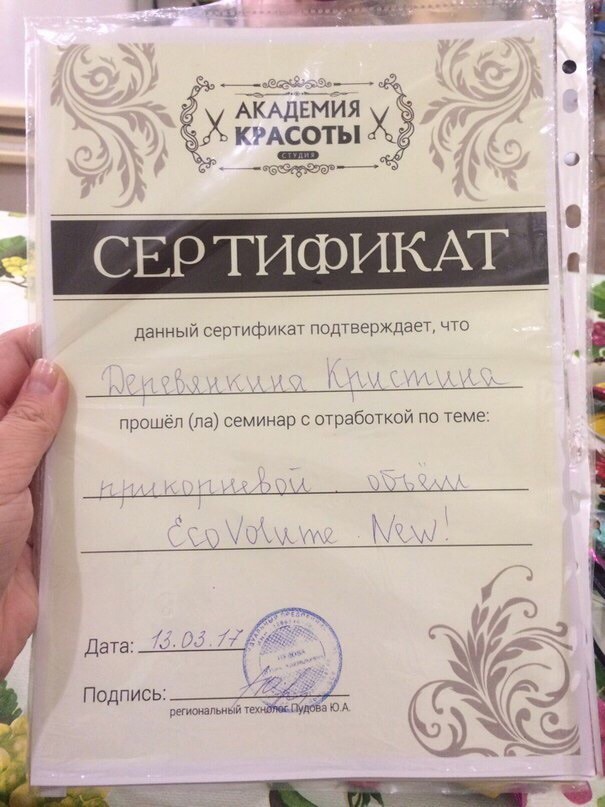 АКАДЕМИЯ
КРАСОТЫ
СТУДИЯ
СЕРТИФИКАТ
данный сертификат подтверждает, что
Деревянкина Кристина
прошёл (ла) семинар с отработкой по теме:
прикорневой объём
EcoVolume New!
Дата: 13.03.17
Подпись:
региональный технолог Пудова Ю.А.